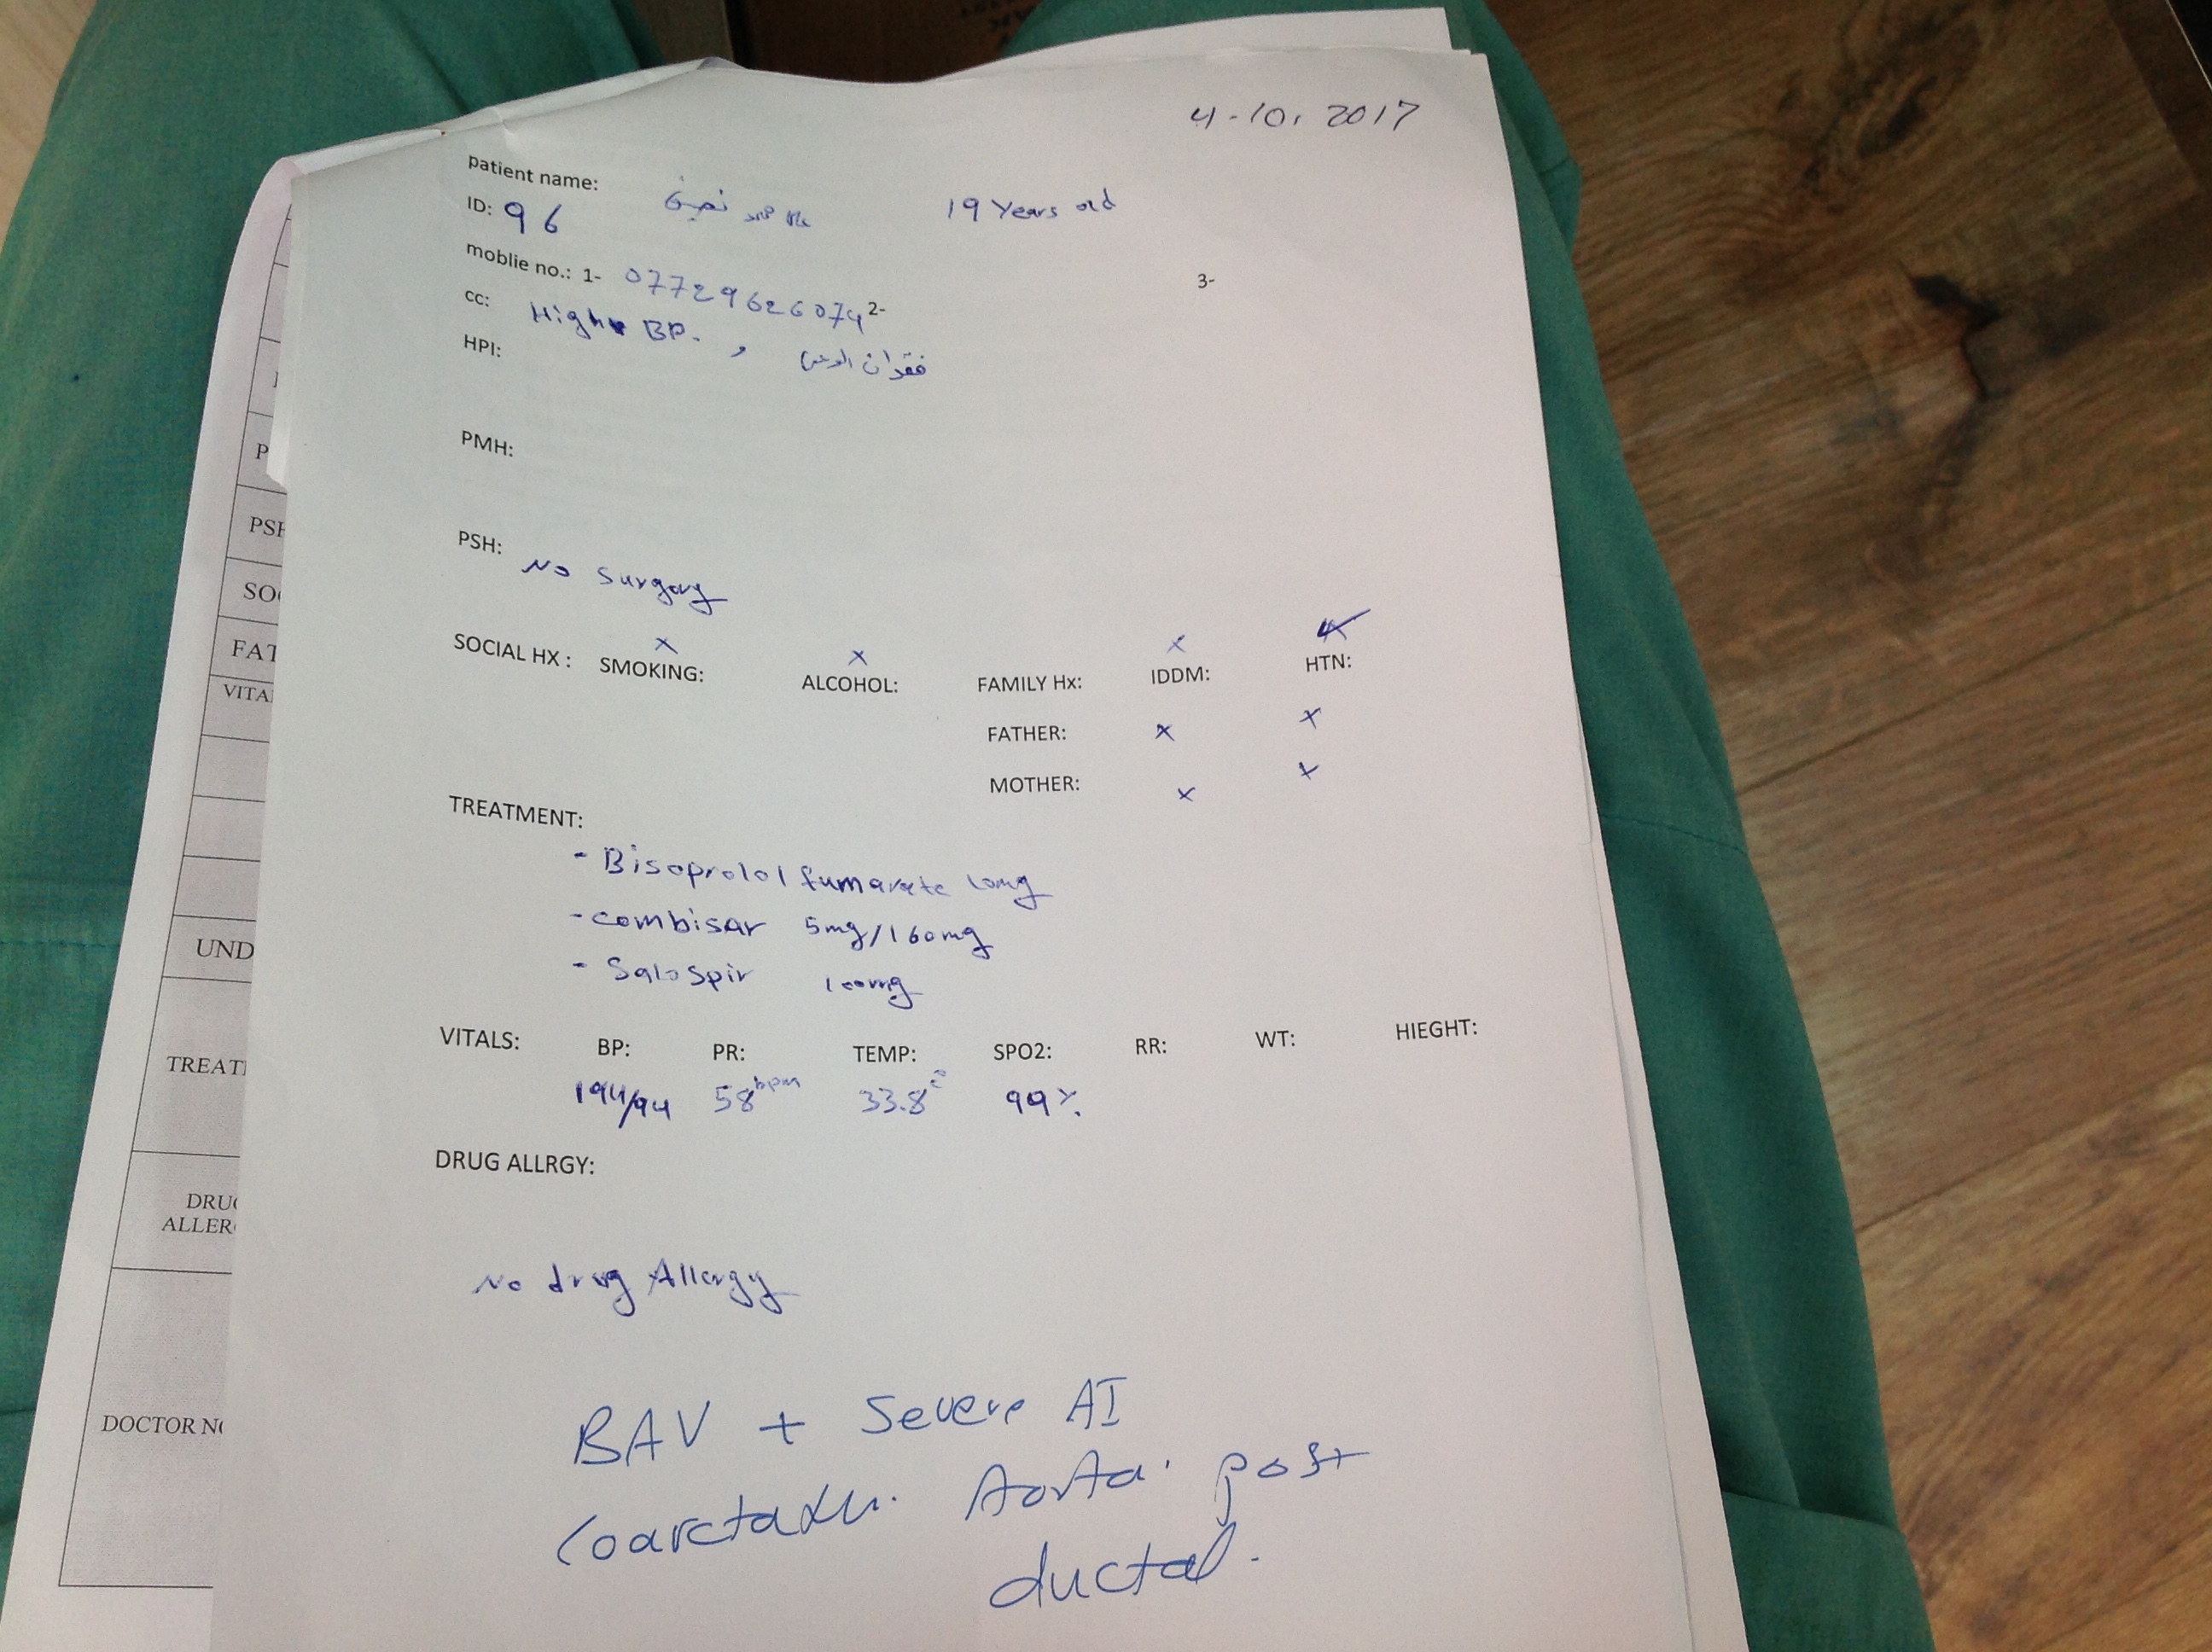 4-10, 2017
patient name:
19 Years old
ID: 96
moblie no.: 1- 07729626074 2- 3-
cc: High BP. و فقدان الوعي
HPI:
PMH:
PSH: No Surgery
SOCIAL HX : SMOKING: x ALCOHOL: x FAMILY Hx: IDDM: x HTN:
FATHER: x x
MOTHER: x x
TREATMENT:
- Bisoprolol fumarate 10mg
- combisar 5mg/160mg
- Salospir 100mg
VITALS: BP: PR: TEMP: SPO2: RR: WT: HIEGHT:
194/94 58 bpm 33.8 c 99%
DRUG ALLRGY:
No drug Allergy
BAV + Severe AI
Aorta. post
ductal.
P
PSH
SO
FAT
VITA
UND
TREAT
DRU
ALLER
DOCTOR N